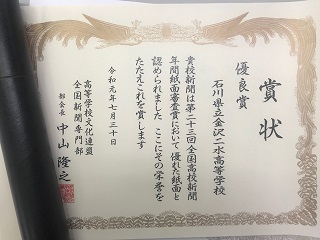 賞状
優良賞
石川県立金沢二水高等学校
貴校新聞は第二十三回全国高校新聞
年間紙面審査賞において優れた紙面と
認められました ここにその栄誉を
たたえこれを賞します
令和元年七月三十日
高等学校文化連盟
全国新聞専門部
部会長 中山隆之